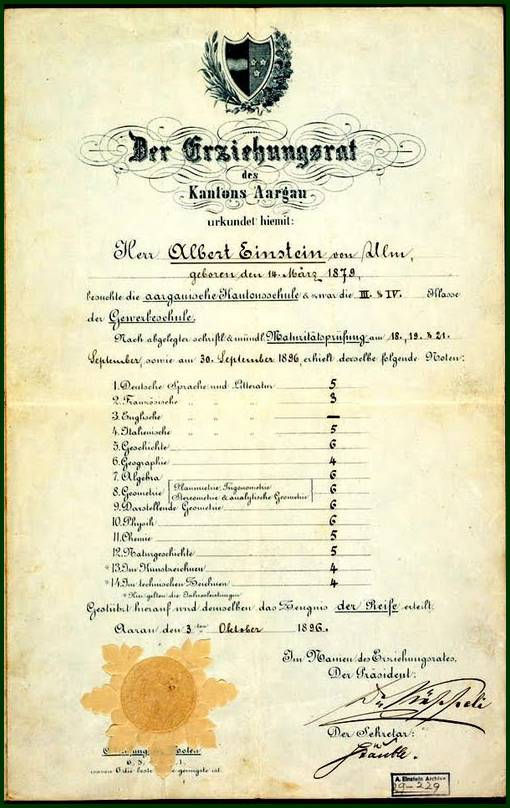 Der Erziehungsrat
des
Kantons Aargau
urkundet hiemit:
Herr Albert Einstein von Ulm,
geboren den 14. März 1879,
besuchte die aargauische Kantonsschule & zwar die III. & IV. Klasse
der Gewerbeschule.
Nach abgelegter schriftl. & mündl. Maturitätsprüfung am 18., 19. & 21.
September, sowie am 30. September 1896, erhielt derselbe folgende Noten:
1. Deutsche Sprache und Litteratur 5
2. Französische " " " 3
3. Englische " " " —
4. Italienische " " " 5
5. Geschichte 6
6. Geographie 4
7. Algebra 6
8. Geometrie Planimetrie, Trigonometrie 6
Stereometrie & analytische Geometrie
9. Darstellende Geometrie 6
10. Physik 6
11. Chemie 5
12. Naturgeschichte 5
*13. Im Kunstzeichnen 4
*14. Im technischen Zeichnen 4
* Hier gelten die Jahresleistungen
Gestützt hierauf wird demselben das Zeugnis der Reife erteilt.
Aarau den 3ten Oktober 1896.
Im Namen des Erziehungsrates,
Der Präsident:
Der Sekretär:
Noten
6, 5, 1,
wovon 6 die beste geringste ist.
A. Einstein Archive
29-229